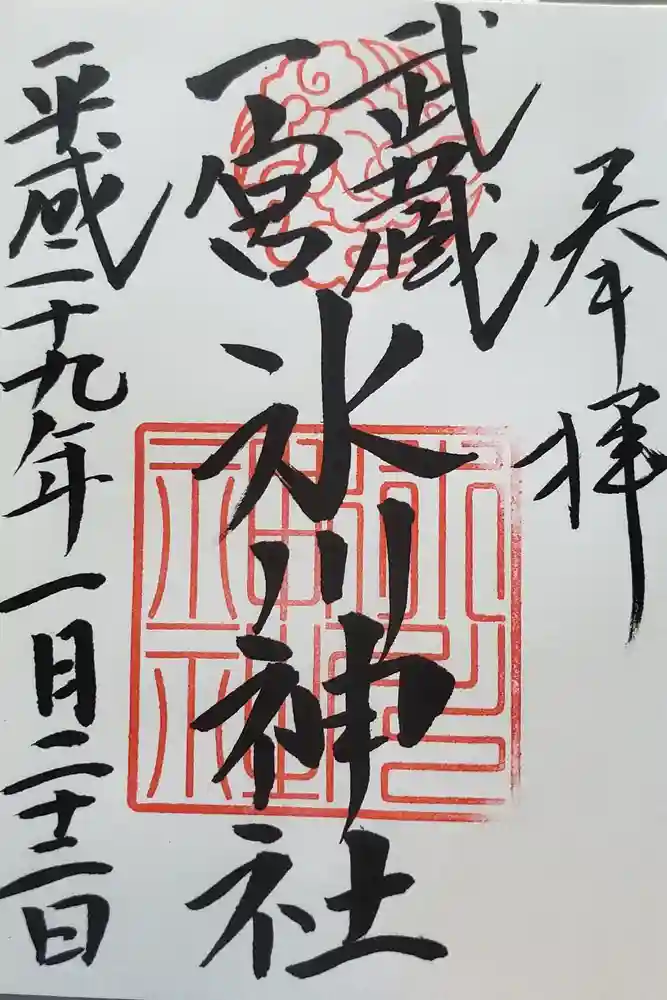 奉拝
武蔵
一宮
氷川神社
平成二十九年一月二十二日